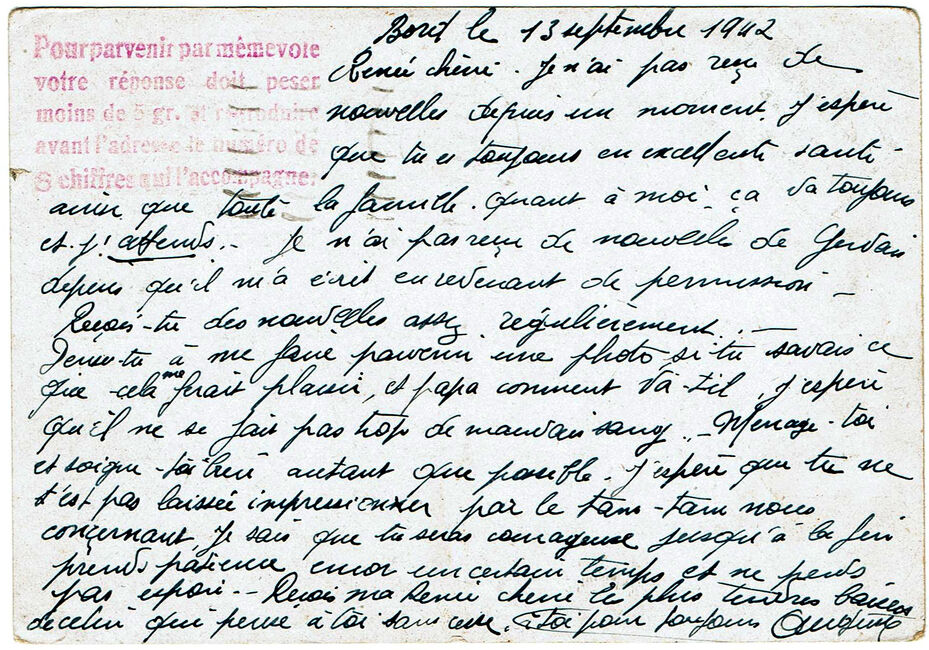 Pour parvenir par même voie
votre réponse doit peser
moins de 5 gr. et reproduire
avant l'adresse le numéro de
8 chiffres qui l'accompagne.
le 13 septembre 1942
Renée chérie. Je n'ai pas reçu de
nouvelles depuis un moment. J'espère
que tu es toujours en excellente santé
ainsi que toute la famille. Quant à moi ça va toujours
et j'attends. Je n'ai pas reçu de nouvelle de
depuis qu'il m'a écrit en revenant de permission
Reçois-tu des nouvelles assez régulièrement.
Penses-tu à me faire parvenir une photo si tu savais ce
que cela me ferait plaisir, et papa comment va-t-il, j'espère
qu'il ne se fait pas trop de mauvais sang. - Ménage-toi
et soigne-toi bien autant que possible. J'espère que tu ne
t'est pas laissée impressionner par le tam-tam nous
concernant, Je sais que tu seras courageuse jusqu'à la fin
prends patience encor un certain temps et ne perds
pas espoir.-- Reçois ma Renée chérie le plus tendres baisers
de celui qui pense à toi sans cesse. à toi pour toujours